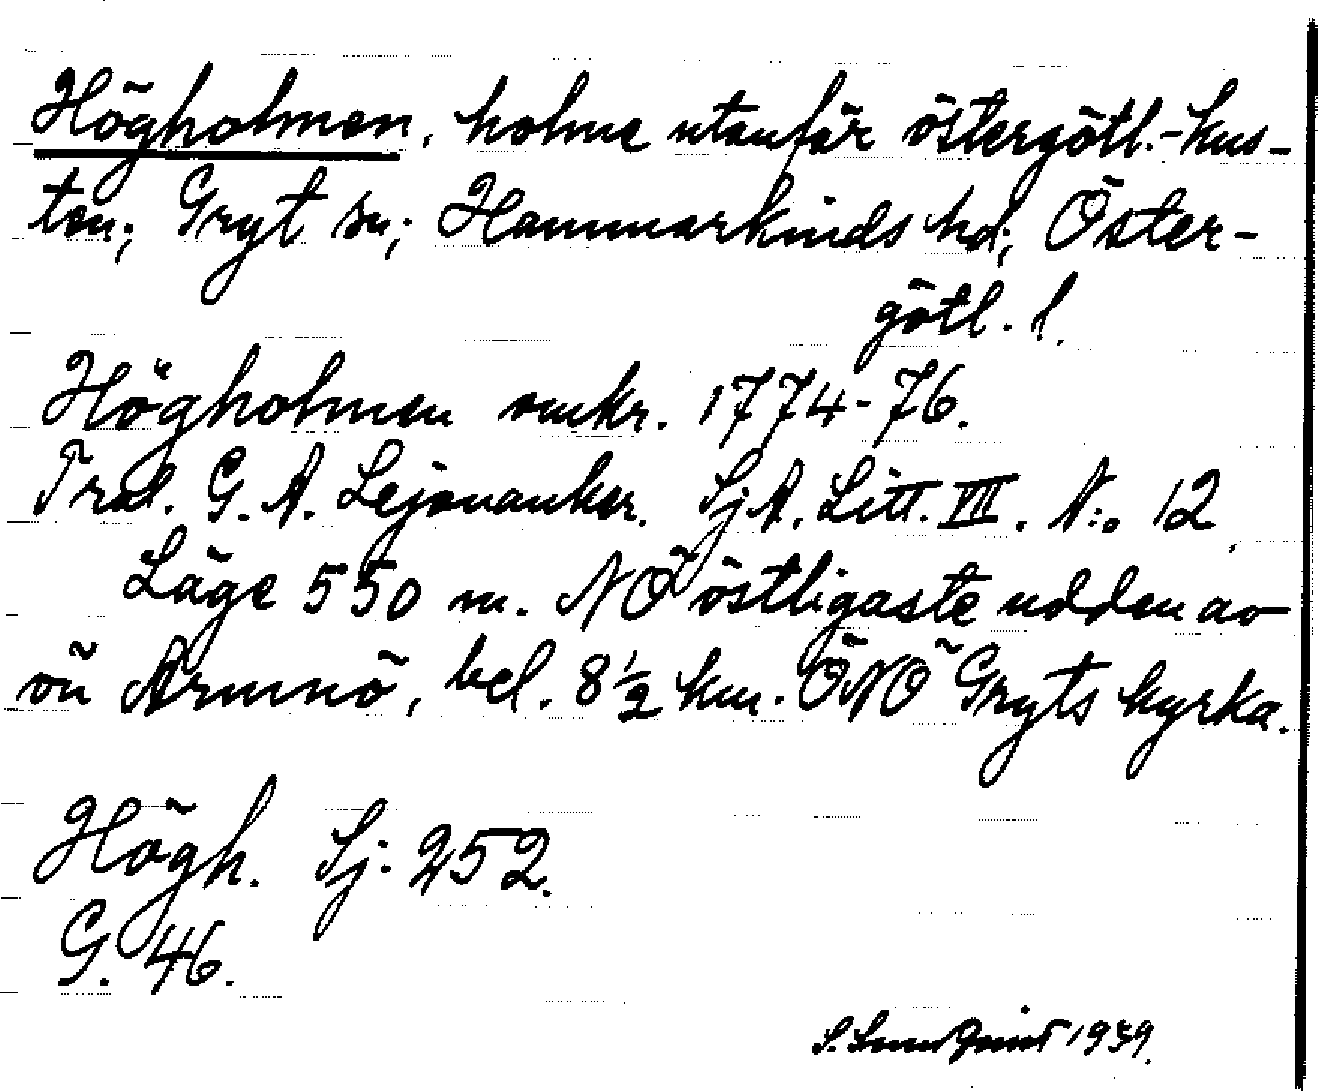 Högholmen, holme utanför östergötl.-kus-
ten; Gryt sn; Hammarkinds hd; Öster-
götl. l.
Högholmen omkr. 1774-76.
Trol. G. A. Lejonanker. SjA. Litt. VIII. N:o 12.
Läge 550 m. NÖ östligaste udden av
ön Armnö, bel. 8 1/2 km. ÖNÖ Gryts kyrka.
Högh. Sj: 252.
G. 46.
S. Sundquist 1939.